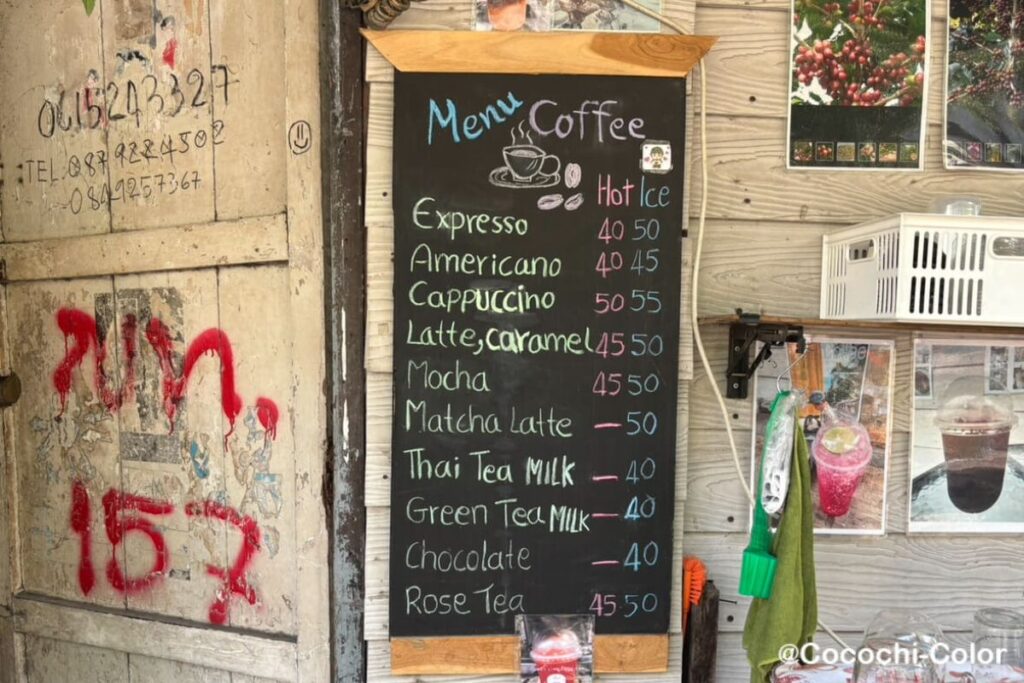 0615243327
TEL:0879224502
0849257367
157
Menu Coffee
Hot Ice
Expresso 40 50
Americano 40 45
Cappuccino 50 55
Latte,caramel 45 50
Mocha 45 50
Matcha Latte — 50
Thai Tea MILK — 40
Green Tea MILK — 40
Chocolate — 40
Rose Tea 45·50
@Cocochi-Color